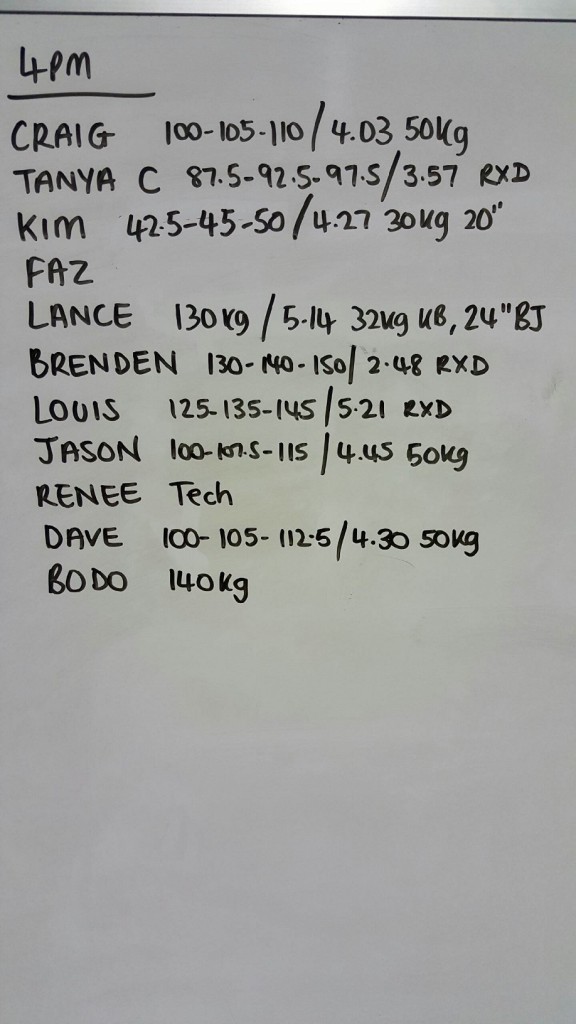 4PM
CRAIG 100-105-110/4.03 50kg
TANYA C 87.5-92.5-97.5/3.57 RXD
KIM 42.5-45-50/4.27 30kg 20"
FAZ
LANCE 130kg/5.14 32kg KB, 24"BJ
BRENDEN 130-140-150/2.48 RXD
LOUIS 125-135-145/5.21 RXD
JASON 100-107.5-115/4.45 50kg
RENEE Tech
DAVE 100-105-112.5/4.30 50kg
BODO 140kg